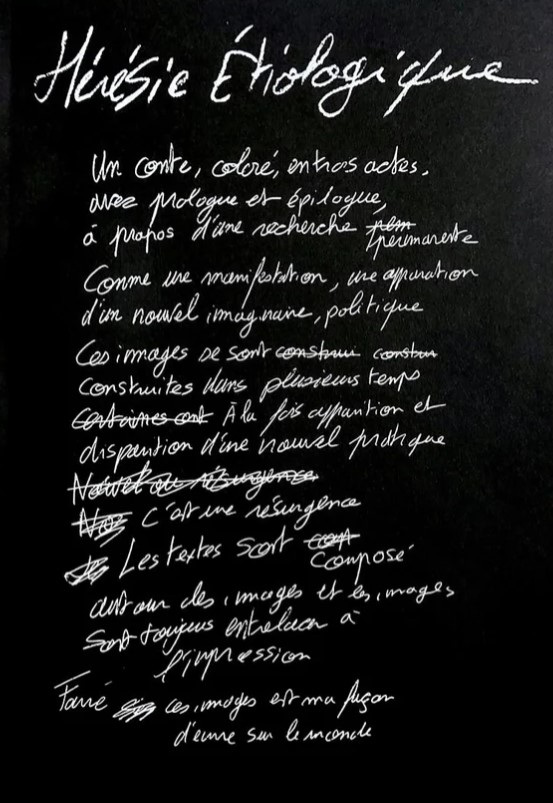 Hérésie Étiologique
Un conte, coloré, en trois actes.
avec prologue et épilogue,
à propos d'une recherche
permanente
Comme une manifestation, une apparution
d'un nouvel imaginaire, politique
Ces images se sont construi constru
construites dans plusieurs temps
certaines ont À la fois apparition et
disparition d'une nouvel pratique
résurgence
C'est une résurgence
Les textes sont
composé
autour des images et les images
sont toujours entrelacer à
l'impression
Faire ces images est ma façon
sur le monde